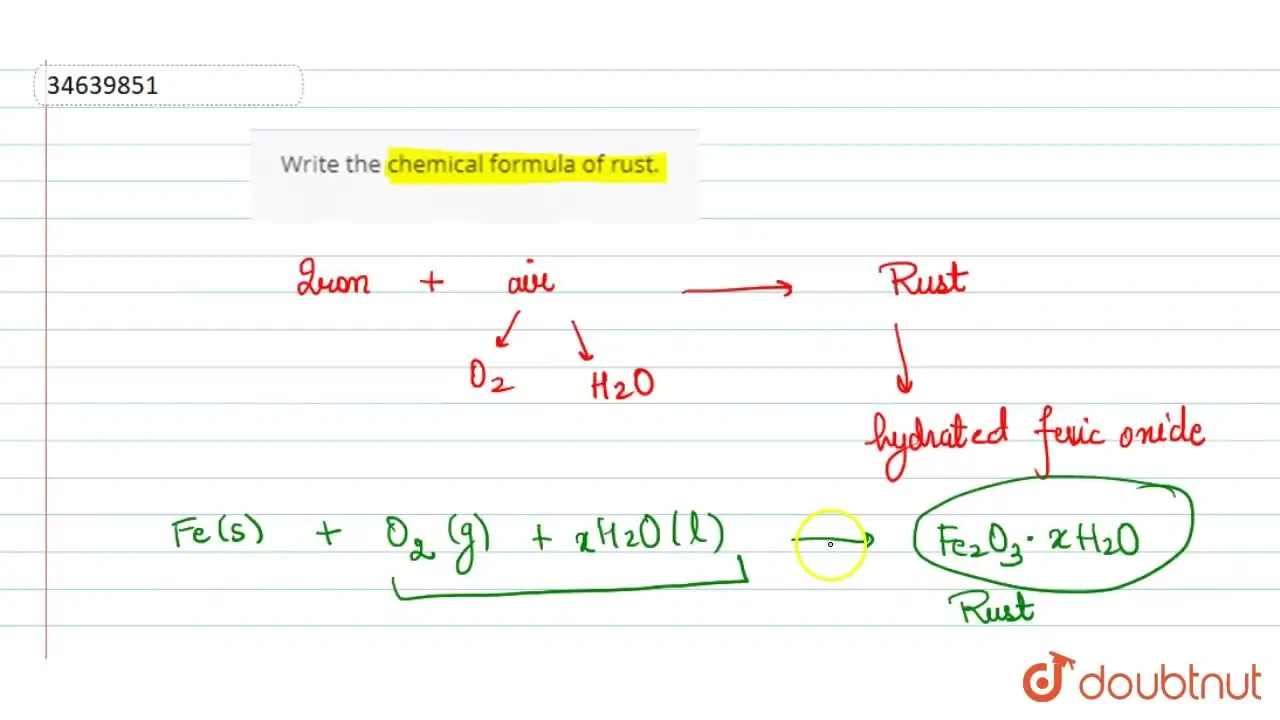 34639851
Write the chemical formula of rust.
Iron + air → Rust
O2 H2O
hydrated ferric oxide
Fe(s) + O2(g) + xH2O(l) → Fe2O3·xH2O
Rust
doubtnut